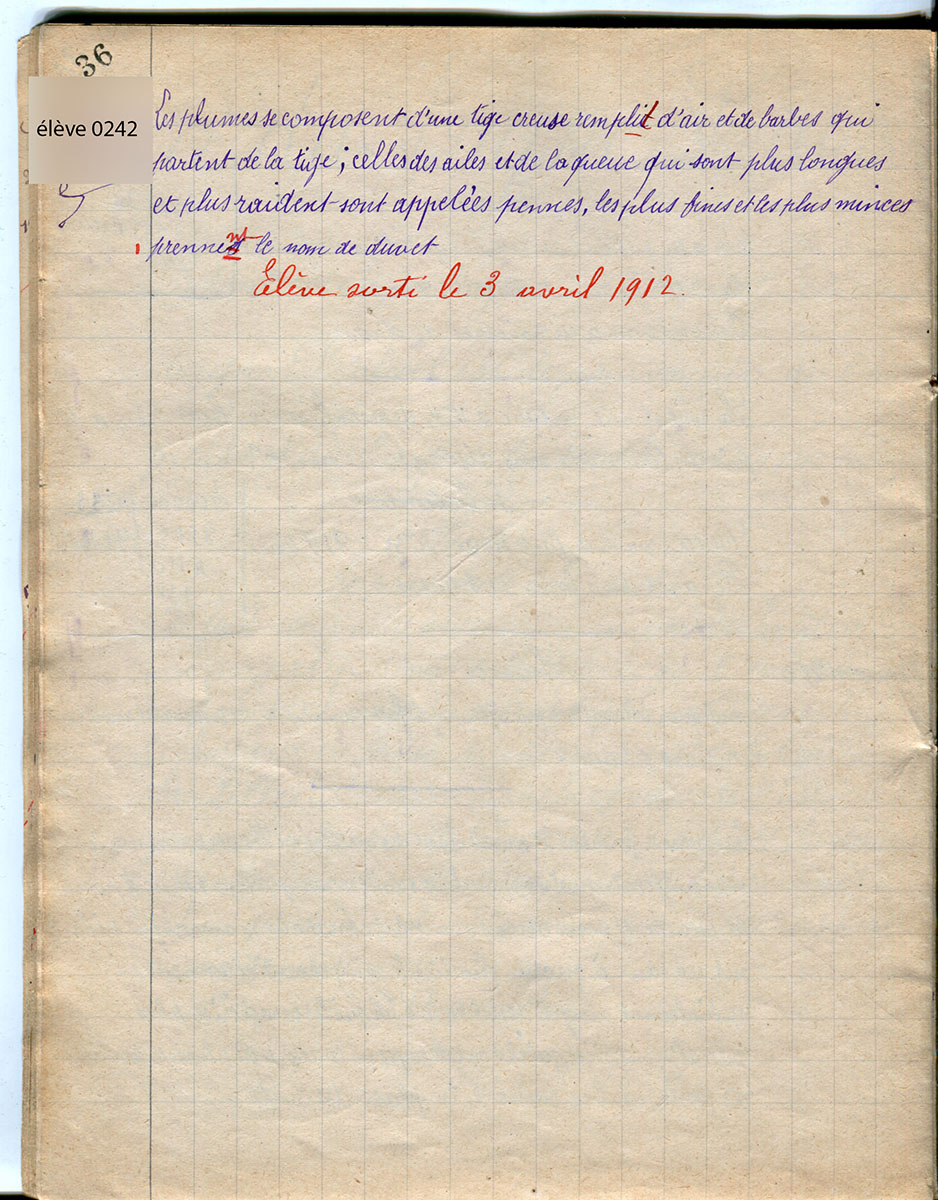 36
élève 0242
Les plumes se composent d'une tige creuse remplit d'air et de barbes qui
partent de la tige ; celles des ailes et de la queue qui sont plus longues
et plus raident sont appelées pennes, les plus fines et les plus minces
1 prennent le nom de duvet
Elève sorti le 3 avril 1912.